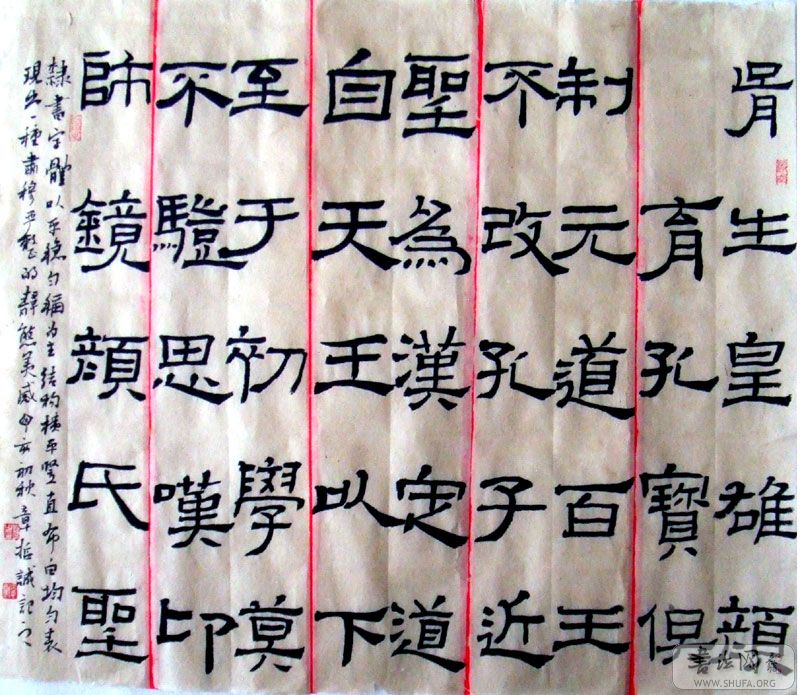 胥生皇雄顏
育孔寶俱
制元道百王
不改孔子近
聖為漢定道
自天王以下
至于初學莫
不驥思嘆卬
師鏡顏氏聖
隸書字體以平穩勻稱为主結构橫平豎直布白均勻表
現出一種肅穆平整的靜態美感亥初秋章哲誠記之
WWW.SHUFA.ORG